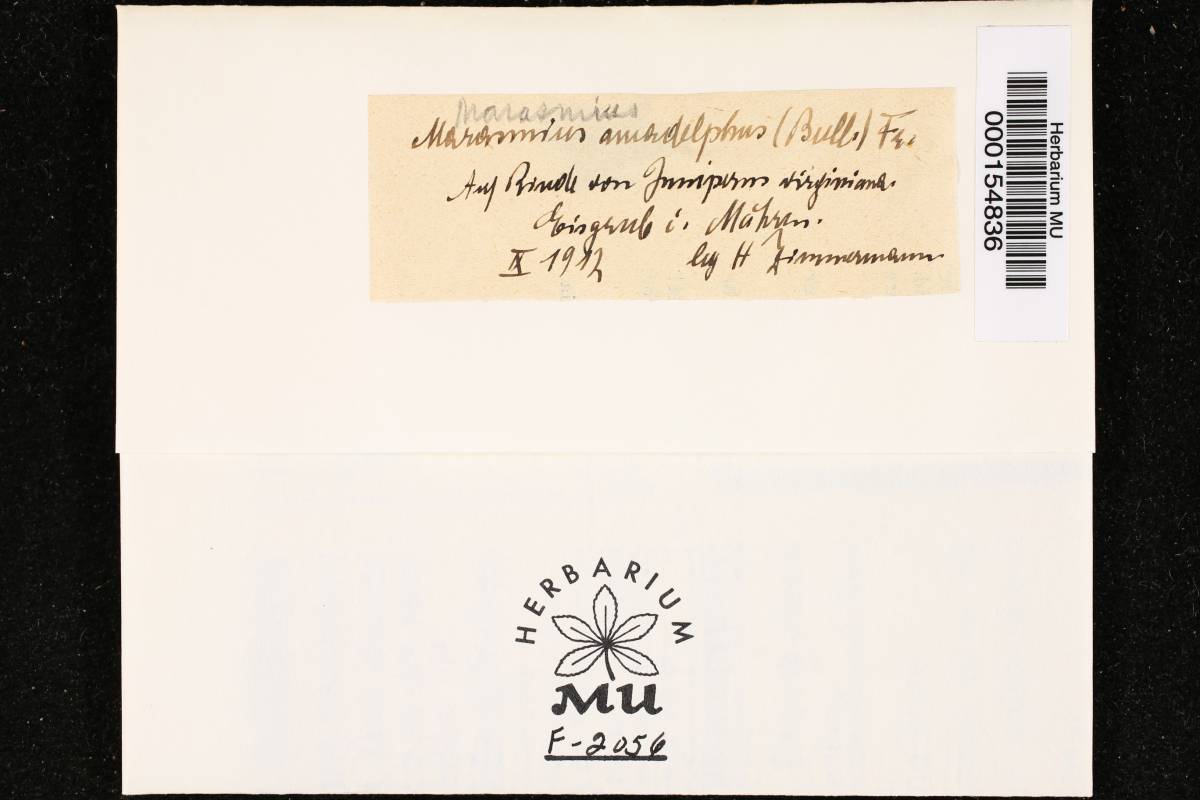 Marasmius
Marasmius amadelphus (Bull.) Fr.
Auf Rinde von Juniperus virginiana.
Eisgrub i. Mähren.
IX 1912 leg H Zimmermann
Herbarium MU
000154836
HERBARIUM
MU
F-2056